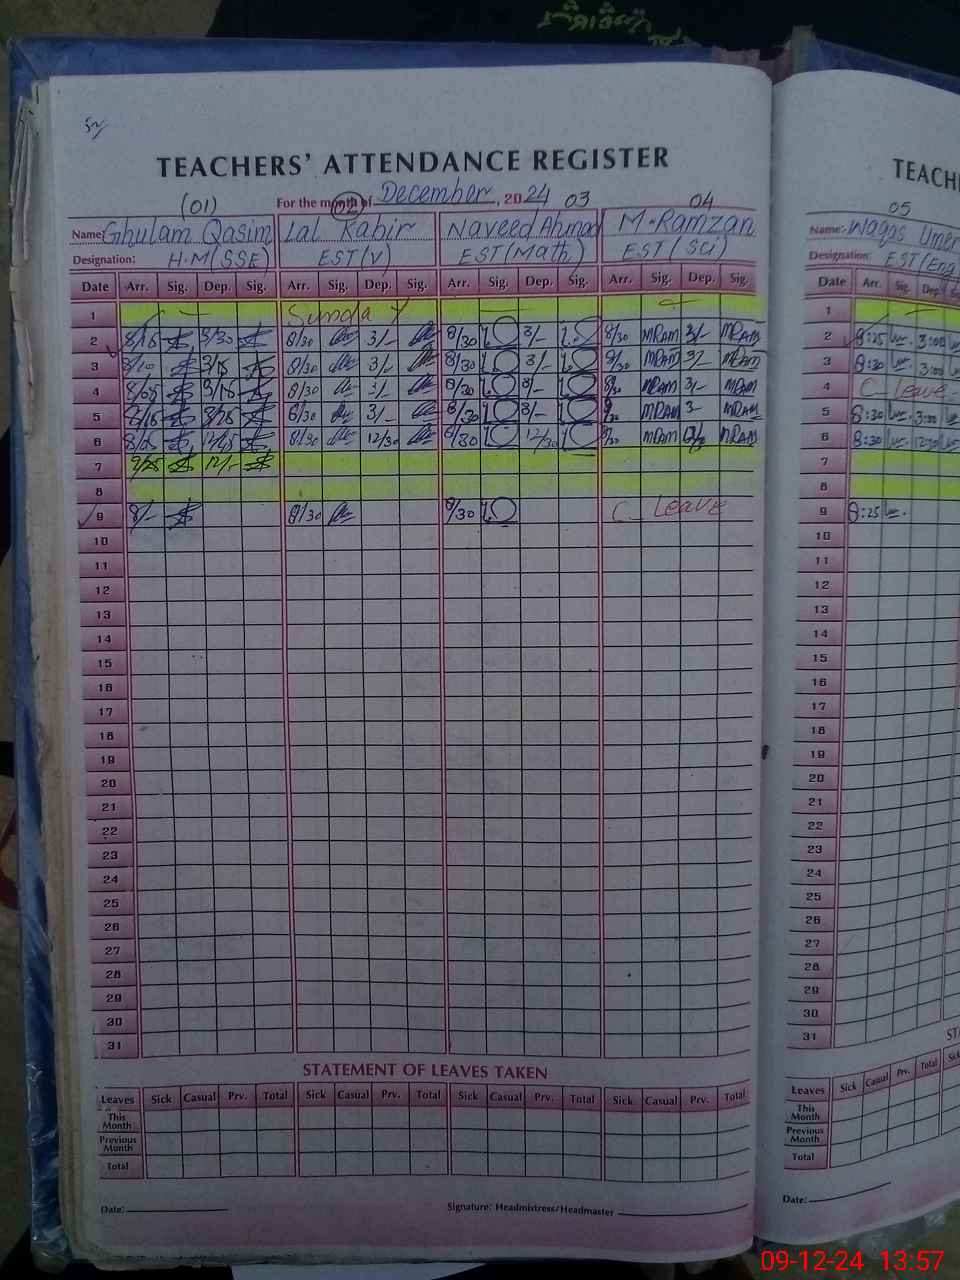 TEACHERS' ATTENDANCE REGISTER
(01) For the month of December, 2024 03 04
02
Name: Ghulam Qasim Lal Kabir Naveed Ahmad M.Ramzan
Designation: H.M(SSE) EST(V) EST(Math) EST(Sci)
Date Arr. Sig. Dep. Sig. Arr. Sig. Dep. Sig. Arr. Sig. Dep. Sig. Arr. Sig. Dep. Sig.
1 Sunday
2 8/15 3/30 8/30 3/- 8/30 3/- 8/30 MRAM 3/- MRAM
3 8/10 3/15 8/30 3/- 8/30 3/- 8/30 MRAM 3/- MRAM
4 3/15 8/30 3/- 8/30 3/- MRAM 3/- MRAM
5 8/15 3/15 8/30 3/- 8/30 3/- MRAM 3- MRAM
6 12/15 8/30 12/30 8/30 12/30 MRAM MRAM
7 12/-
8
9 8/- 8/30 8/30 C_ Leave
10
11
12
13
14
15
16
17
18
19
20
21
22
23
24
25
26
27
28
29
30
31
STATEMENT OF LEAVES TAKEN
Leaves Sick Casual Prv. Total Sick Casual Prv. Total Sick Casual Prv. Total Sick Casual Prv. Total
This Month
Previous Month
Total
Date: Signature: Headmistress/Headmaster
TEACH
05
Name:- Waqas Umer
Designation: EST(Eng
Date Arr. Sig. Dep.
1
2 8:25 3:00
3 8:30 3:00
4 C_ Leave
5 8:30 3:00
6 8:30 12:30
7
8
9 8:25
10
11
12
13
14
15
16
17
18
19
20
21
22
23
24
25
26
27
28
29
30
31
ST
Leaves Sick Casual Prv. Total Sick
This Month
Previous Month
Total
Date:
09-12-24 13:57